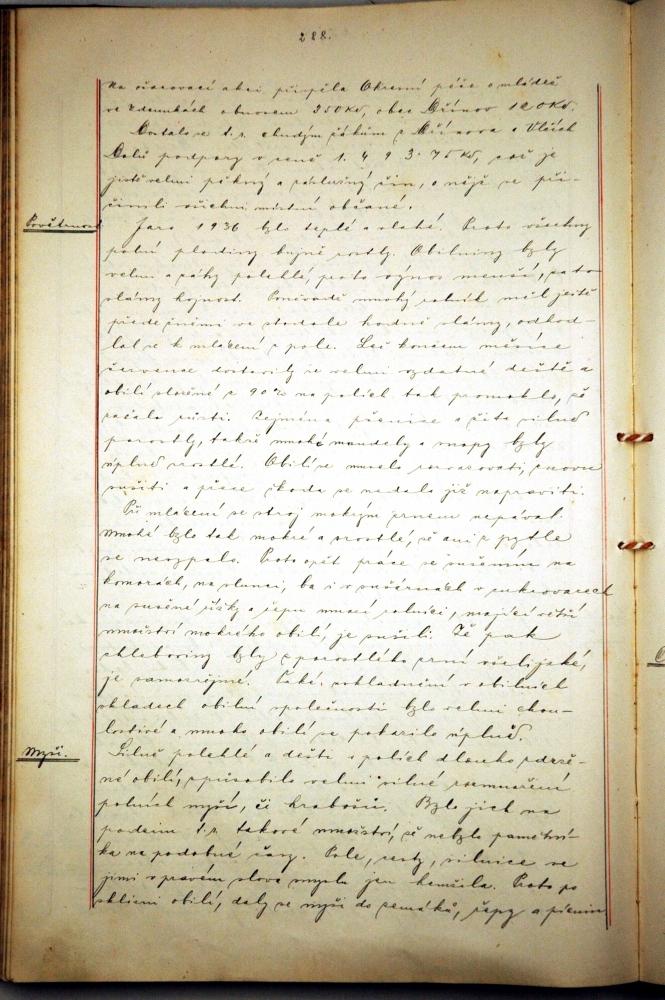 288.
Na ošacovací akci přispěla Okresní péče o mládež
ve Zdounkách obnosem 250 Kč, obec Dřínov 120 Kč.
Dostalo se t.r. chudým žákům z Dřínova a Vlčích
Dolů podpory v ceně 1.493·75 Kč, což je
jistě velmi pěkný a záslužný čin, o nějž se při-
činili všichni místní občané.
Povětrnost
Jaro 1936 bylo teplé a vlahé. Proto všechny
polní plodiny bujně rostly. Obilniny byly
velmi a záhy polehlé, proto výnos menší, za to
slámy hojnost. Poněvadž mnohý rolník měl ještě
předežními ve stodole hodně slámy, odhod-
lal se k mlácení z pole. Leč koncem měsíce
července dostavily se velmi vydatné deště a
obilí složené z 90% na polích tak promoklo, že
začalo růsti. Zejména pšenice a žita silně
porostly, takže mnohé mandely a snopy byly
úplně srostlé. Obilí se muselo rozvazovati, znovu
sušiti a přece škoda se nedala již napraviti.
Při mlácení se stroj mokrým zrnem zepával.
Mnohé bylo tak mokré a srostlé, že ani z pytle
se nesypalo. Proto opět práce se sušením na
komorách, na slunci, ba i v sušárnách v cukrovarech
na sušené řízky a řepu mnozí rolníci, mající větší
množství mokrého obilí, je sušili. Že pak
chleboviny byly z porostlého zrní všelijaké,
je samozřejmé. Také uskladnění v obilních
skladech obilní společnosti bylo velmi chou-
lostivé a mnoho obilí se pokazilo úplně.
Myši.
Silně polehlé a dešti v polích dlouho zdrže-
né obilí, způsobilo velmi silné rozmnožení
polních myší, či hrabošů. Bylo jich na
podzim t.r. takové množství, že nebylo pamětní-
ka na podobné časy. Pole, cesty, silnice se
jimi v pravém slova smyslu jen hemžila. Proto po
sklizni obilí, daly se myši do zemáků, řepy a pícnin